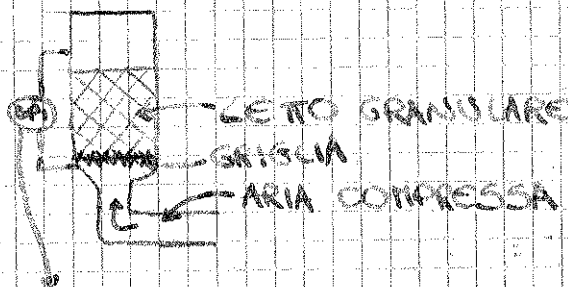 ΔPI
LETTO GRANULARE
GRIGLIA
ARIA COMPRESSA